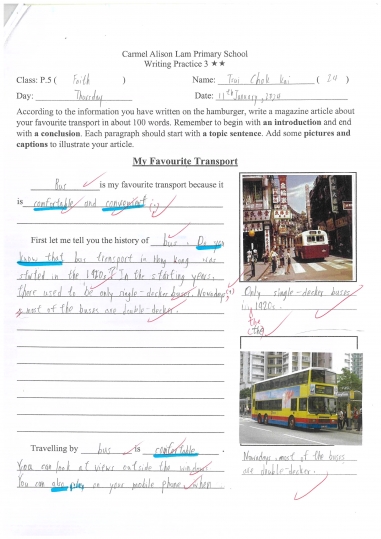 Carmel Alison Lam Primary School
Writing Practice 3 ★★
Class: P.5 ( Faith )
Name: Tsui Chok Kai ( 24 )
Day: Thursday
Date: 11th January, 2024
According to the information you have written on the hamburger, write a magazine article about
your favourite transport in about 100 words. Remember to begin with an introduction and end
with a conclusion. Each paragraph should start with a topic sentence. Add some pictures and
captions to illustrate your article.
My Favourite Transport
Bus is my favourite transport because it
is comfortable and convenient.
First let me tell you the history of bus. Do you
know that bus transport in Hong Kong was
started in the 1920s? In the starting years,
there used to be only single-decker buses. Nowadays,
most of the buses are double-decker.
Only single-decker buses
in 1920s.
the
Travelling by bus is comfortable.
You can look at views outside the windows.
You can also play on your mobile phone when
Nowadays, most of the buses
are double-decker.